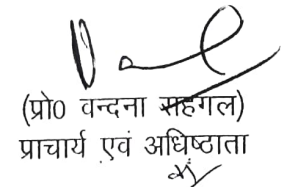 (प्रो० वन्दना सहगल)
प्राचार्य एवं अधिष्ठाता